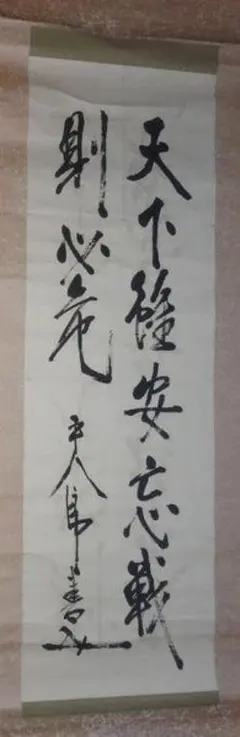 天下雖安忘戦
則必危